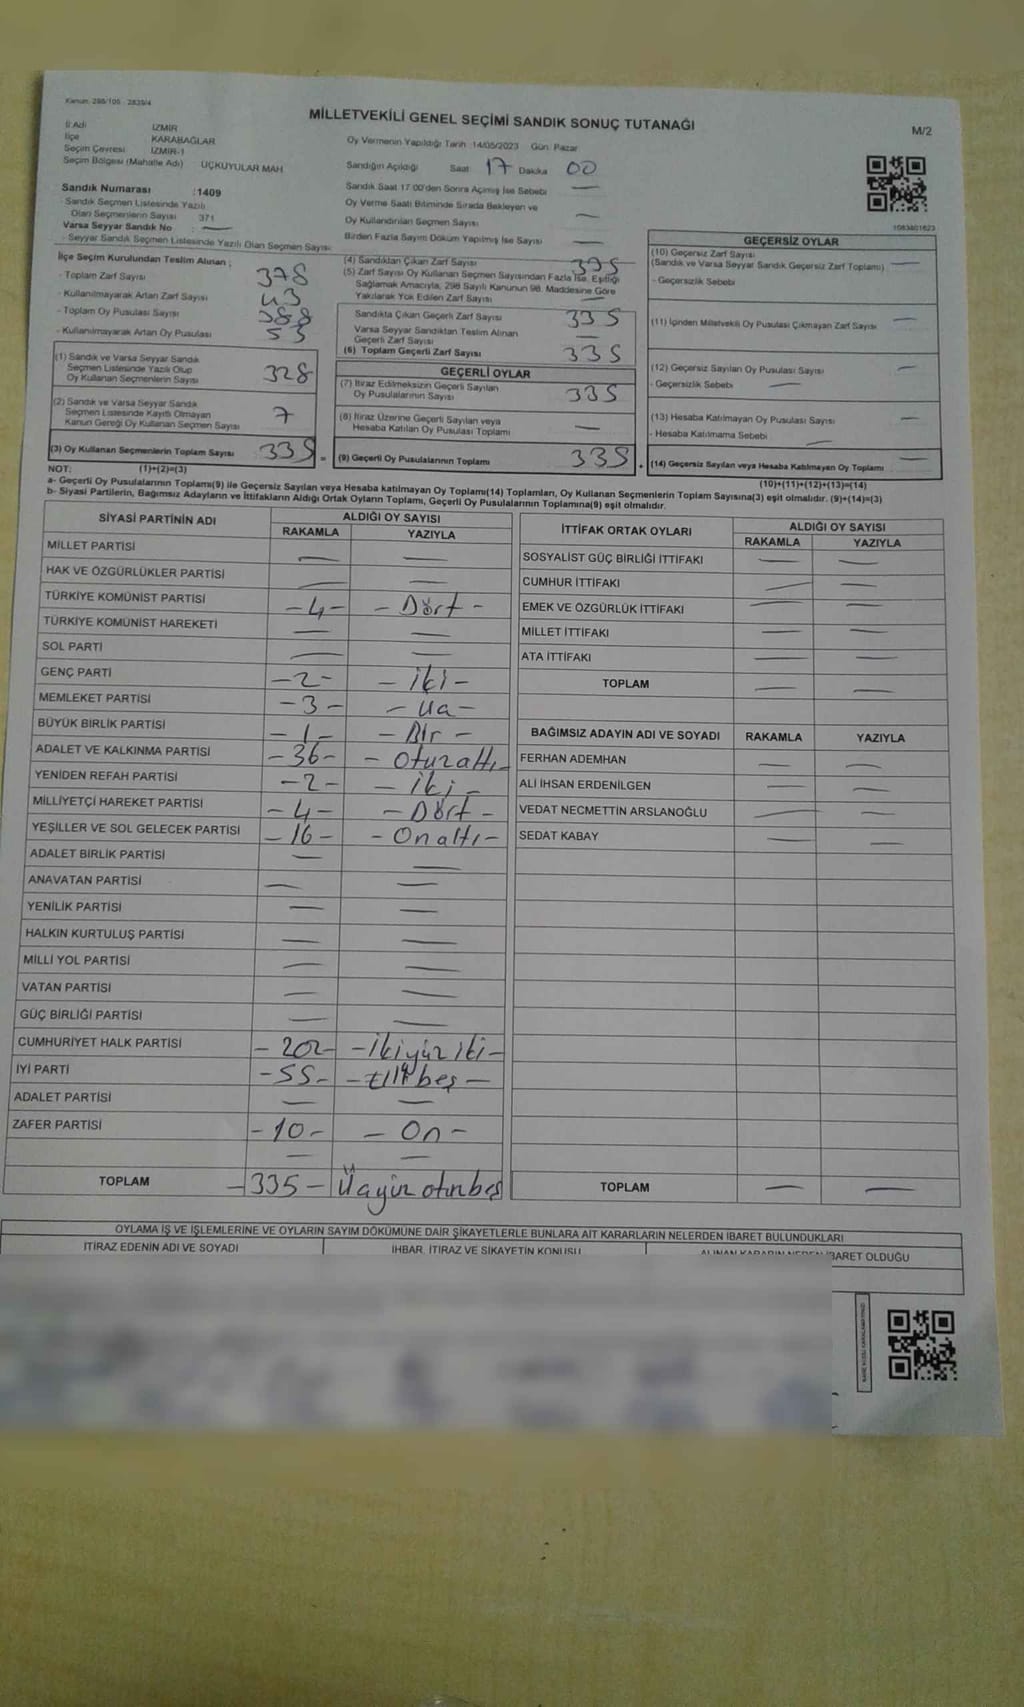 Kanun: 298/105 - 2839/4
MİLLETVEKİLİ GENEL SEÇİMİ SANDIK SONUÇ TUTANAĞI
M/2
İl Adı İZMİR
İlçe KARABAĞLAR
Seçim Çevresi İZMİR-1
Seçim Bölgesi (Mahalle Adı) ÜÇKUYULAR MAH
Sandık Numarası :1409
- Sandık Seçmen Listesinde Yazılı
Olan Seçmenlerin Sayısı 371
Varsa Seyyar Sandık No : —
- Seyyar Sandık Seçmen Listesinde Yazılı Olan Seçmen Sayısı:
Oy Vermenin Yapıldığı Tarih 14/05/2023 Gün: Pazar
Sandığın Açıldığı Saat 17 Dakika 00
Sandık Saat 17:00'den Sonra Açılmış İse Sebebi —
Oy Verme Saati Bitiminde Sırada Bekleyen ve
Oy Kullandırılan Seçmen Sayısı —
Birden Fazla Sayım Döküm Yapılmış İse Sayısı —
1083801623
İlçe Seçim Kurulundan Teslim Alınan ;
- Toplam Zarf Sayısı 378
- Kullanılmayarak Artan Zarf Sayısı 43
- Toplam Oy Pusulası Sayısı 388
- Kullanılmayarak Artan Oy Pusulası 53
(1) Sandık ve Varsa Seyyar Sandık
Seçmen Listesinde Yazılı Olup
Oy Kullanan Seçmenlerin Sayısı 328
(2) Sandık ve Varsa Seyyar Sandık
Seçmen Listesinde Kayıtlı Olmayan
Kanun Gereği Oy Kullanan Seçmen Sayısı 7
(3) Oy Kullanan Seçmenlerin Toplam Sayısı 335 =
NOT: (1)+(2)=(3)
(4) Sandıktan Çıkan Zarf Sayısı 335
(5) Zarf Sayısı Oy Kullanan Seçmen Sayısından Fazla İse, Eşitliği
Sağlamak Amacıyla, 298 Sayılı Kanunun 98. Maddesine Göre
Yakılarak Yok Edilen Zarf Sayısı —
Sandıkta Çıkan Geçerli Zarf Sayısı 335
Varsa Seyyar Sandıktan Teslim Alınan
Geçerli Zarf Sayısı —
(6) Toplam Geçerli Zarf Sayısı 335
GEÇERLİ OYLAR
(7) İtiraz Edilmeksizin Geçerli Sayılan
Oy Pusulalarının Sayısı 335
(8) İtiraz Üzerine Geçerli Sayılan veya
Hesaba Katılan Oy Pusulası Toplamı —
(9) Geçerli Oy Pusulalarının Toplamı 335 +
GEÇERSİZ OYLAR
(10) Geçersiz Zarf Sayısı
(Sandık ve Varsa Seyyar Sandık Geçersiz Zarf Toplamı) —
- Geçersizlik Sebebi
(11) İçinden Milletvekili Oy Pusulası Çıkmayan Zarf Sayısı —
(12) Geçersiz Sayılan Oy Pusulası Sayısı —
- Geçersizlik Sebebi —
(13) Hesaba Katılmayan Oy Pusulası Sayısı —
- Hesaba Katılmama Sebebi —
(14) Geçersiz Sayılan veya Hesaba Katılmayan Oy Toplamı —
(10)+(11)+(12)+(13)=(14)
a- Geçerli Oy Pusulalarının Toplamı(9) ile Geçersiz Sayılan veya Hesaba katılmayan Oy Toplamı(14) Toplamları, Oy Kullanan Seçmenlerin Toplam Sayısına(3) eşit olmalıdır. (9)+(14)=(3)
b- Siyasi Partilerin, Bağımsız Adayların ve İttifakların Aldığı Ortak Oyların Toplamı, Geçerli Oy Pusulalarının Toplamına(9) eşit olmalıdır.
SİYASİ PARTİNİN ADI ALDIĞI OY SAYISI
RAKAMLA YAZIYLA
MİLLET PARTİSİ — —
HAK VE ÖZGÜRLÜKLER PARTİSİ — —
TÜRKİYE KOMÜNİST PARTİSİ -4- - Dört -
TÜRKİYE KOMÜNİST HAREKETİ — —
SOL PARTİ — —
GENÇ PARTİ -2- - iki -
MEMLEKET PARTİSİ -3-
BÜYÜK BİRLİK PARTİSİ -1- - Bir -
ADALET VE KALKINMA PARTİSİ -36- - Otuzaltı
YENİDEN REFAH PARTİSİ -2- - iki -
MİLLİYETÇİ HAREKET PARTİSİ -4- - Dört -
YEŞİLLER VE SOL GELECEK PARTİSİ -16- - Onaltı -
ADALET BİRLİK PARTİSİ — —
ANAVATAN PARTİSİ — —
YENİLİK PARTİSİ — —
HALKIN KURTULUŞ PARTİSİ — —
MİLLİ YOL PARTİSİ — —
VATAN PARTİSİ — —
GÜÇ BİRLİĞİ PARTİSİ — —
CUMHURİYET HALK PARTİSİ -202- - ikiyüz iki -
İYİ PARTİ -55- - Elli beş -
ADALET PARTİSİ — —
ZAFER PARTİSİ -10- - On -
— —
TOPLAM -335-
İTTİFAK ORTAK OYLARI ALDIĞI OY SAYISI
RAKAMLA YAZIYLA
SOSYALİST GÜÇ BİRLİĞİ İTTİFAKI — —
CUMHUR İTTİFAKI — —
EMEK VE ÖZGÜRLÜK İTTİFAKI — —
MİLLET İTTİFAKI — —
ATA İTTİFAKI — —
TOPLAM — —
BAĞIMSIZ ADAYIN ADI VE SOYADI RAKAMLA YAZIYLA
FERHAN ADEMHAN — —
ALİ İHSAN ERDENİLGEN — —
VEDAT NECMETTİN ARSLANOĞLU — —
SEDAT KABAY — —
TOPLAM — —
OYLAMA İŞ VE İŞLEMLERİNE VE OYLARIN SAYIM DÖKÜMÜNE DAİR ŞİKAYETLERLE BUNLARA AİT KARARLARIN NELERDEN İBARET BULUNDUKLARI
İTİRAZ EDENİN ADI VE SOYADI İHBAR, İTİRAZ VE ŞİKAYETİN KONUSU ALINAN KARARIN NEDEN İBARET OLDUĞU